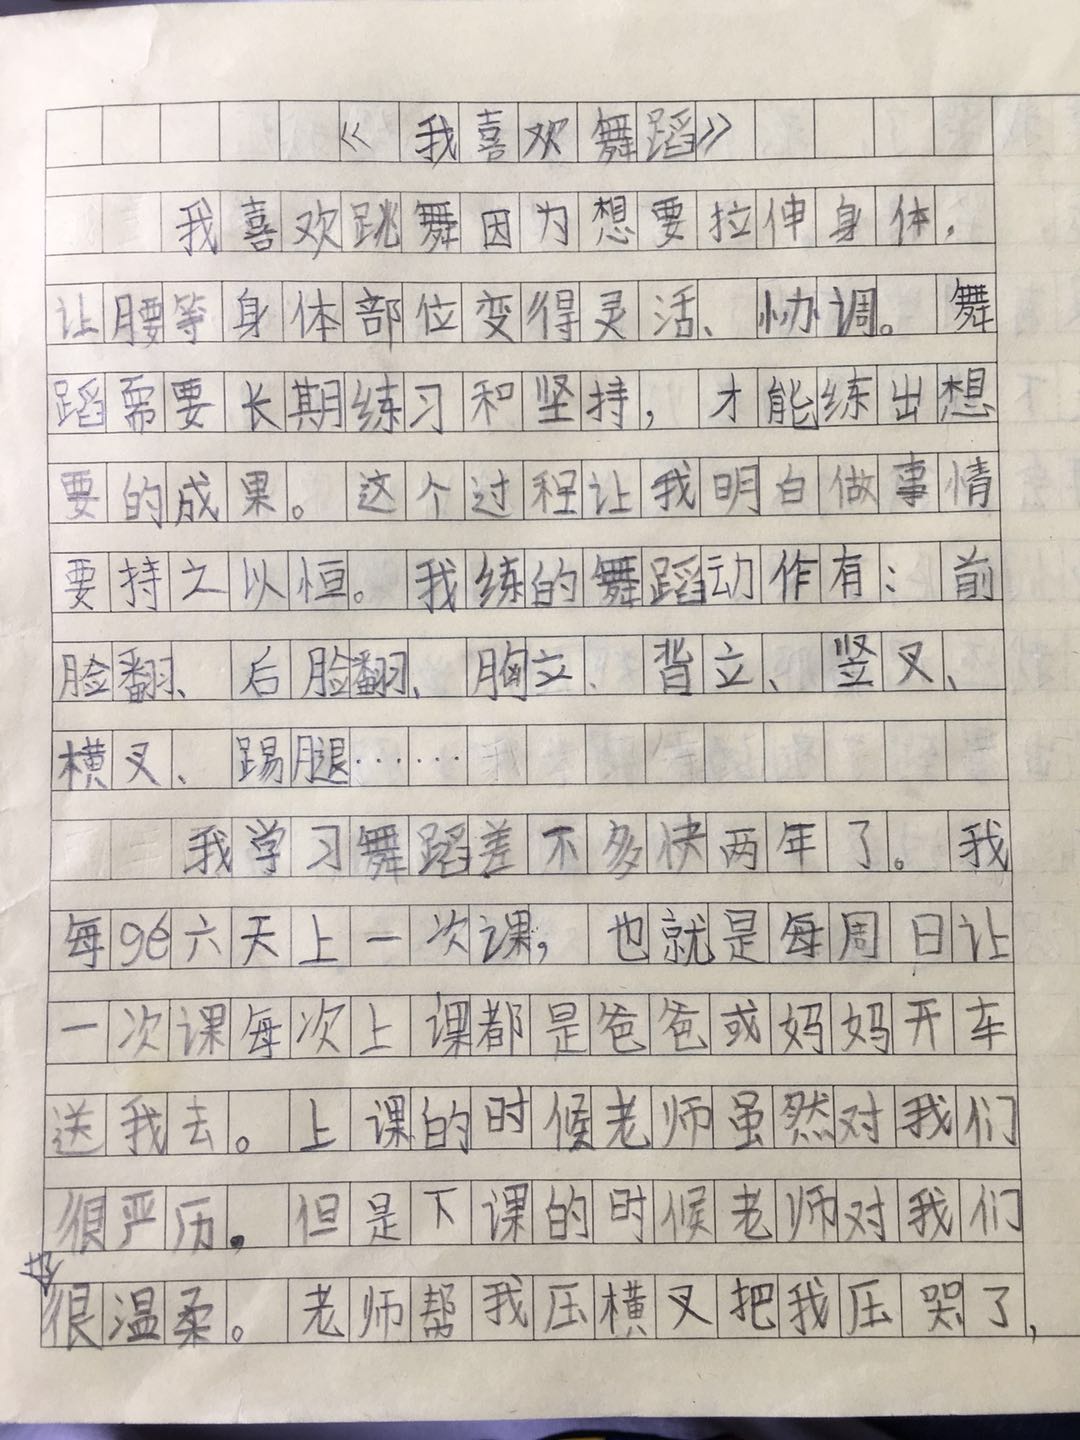 《我喜欢舞蹈》
我喜欢跳舞因为想要拉伸身体，
让腰等身体部位变得灵活、协调。舞
蹈需要长期练习和坚持，才能练出想
要的成果。这个过程让我明白做事情
要持之以恒。我练的舞蹈动作有：前
脸翻、后脸翻、胸立、背立、竖叉、
横叉、踢腿……
我学习舞蹈差不多快两年了。我
每96六天上一次课，也就是每周日让
一次课每次上课都是爸爸或妈妈开车
送我去。上课的时候老师虽然对我们
很严历。但是下课的时候老师对我们
很温柔。老师帮我压横叉把我压哭了，